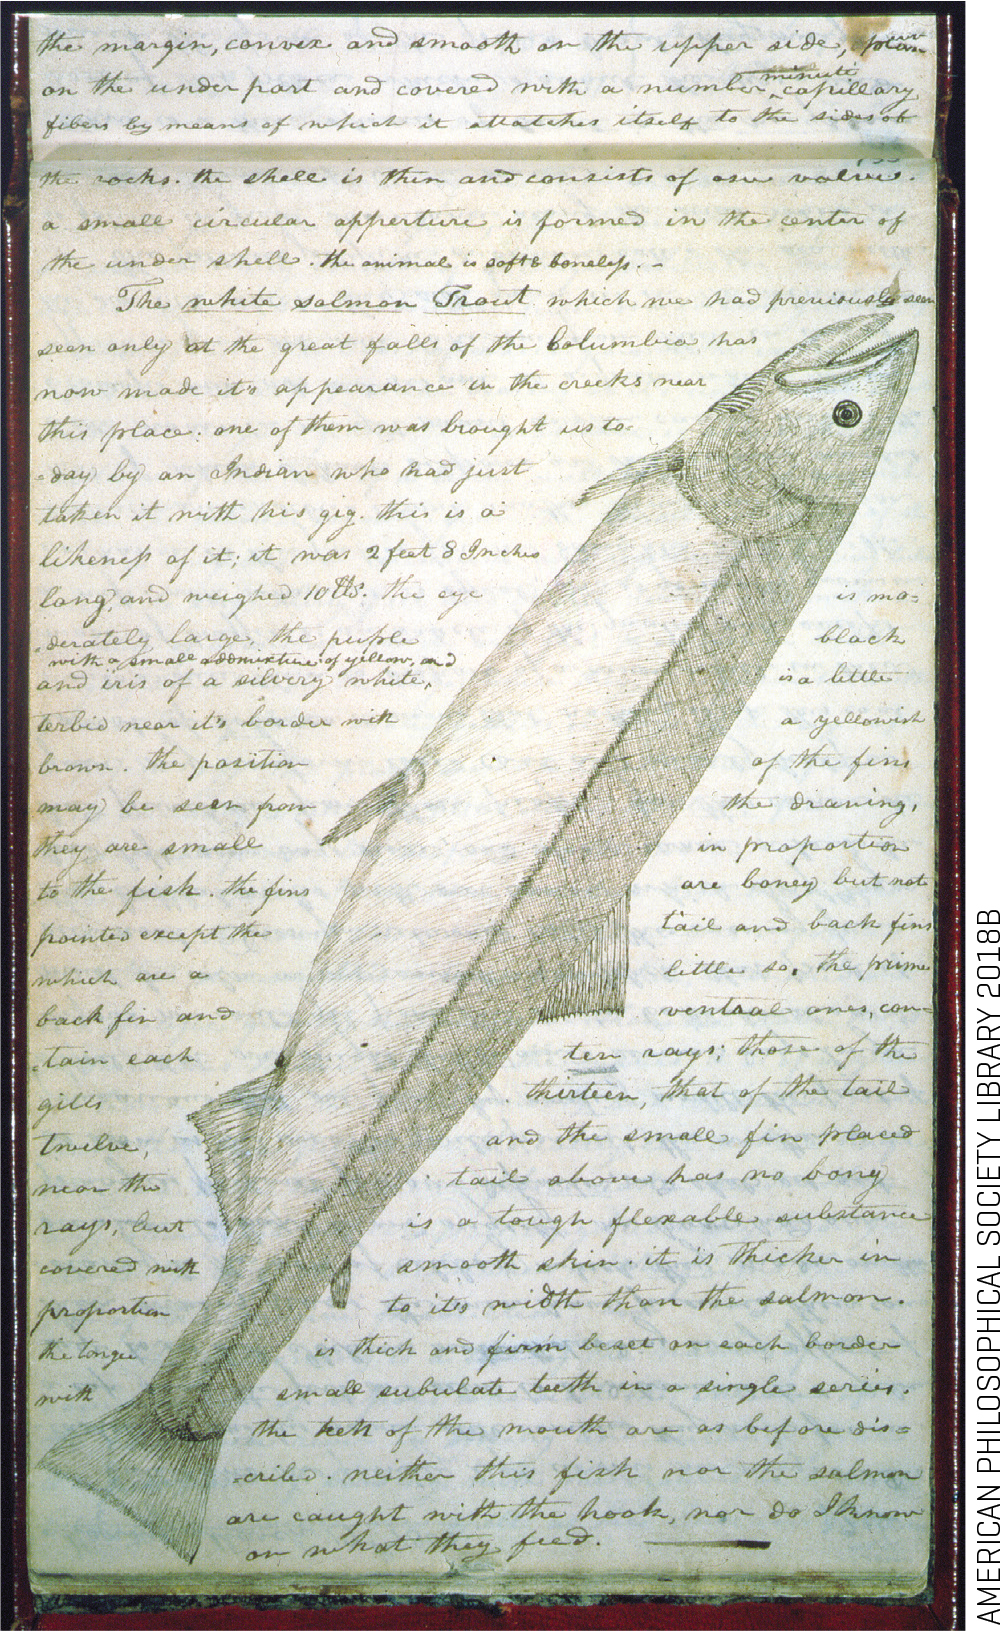 the margin, convex and smooth on the upper side,
on the under part and covered with a number minute capillary
fibers by means of which it attatches itself to the sides of
the rocks. the shell is thin and consists of one valve.
a small circular apperture is formed in the center of
the under shell. the animal is soft & boneless. -
The white salmon Trout which we had previously seen
seen only at the great falls of the Columbia has
now made it's appearance in the creeks near
this place. one of them was brought us to-
-day by an Indian who had just
taken it with his gig. this is a
likeness of it; it was 2 feet 8 Inches
long, and weighed 10 lbs. the eye is mo=
=derately large, the puple black
with a small addmixture of yellow, and
and iris of a silvery white, is a little
terbid near it's border with a yellowish
brown. the position of the fins
may be seen from the drawing,
they are small in proportion
to the fish. the fins are boney but not
pointed except the tail and back fins
which are a little so. the prime
back fin and ventral ones, con=
=tain each ten rays; those of the
gills thirteen, that of the tail
twelve, and the small fin placed
near the tail above has no bony
rays, but is a tough flexable substance
covered with smooth skin. it is thicker in
proportion to it's width than the salmon.
the tongue is thick and firm beset on each border
with small subulate teeth in a single series.
the teeth of the mouth are as before dis=
=cribed. neither this fish nor the salmon
are caught with the hook, nor do I know
on what they feed.
AMERICAN PHILOSOPHICAL SOCIETY LIBRARY 2018B